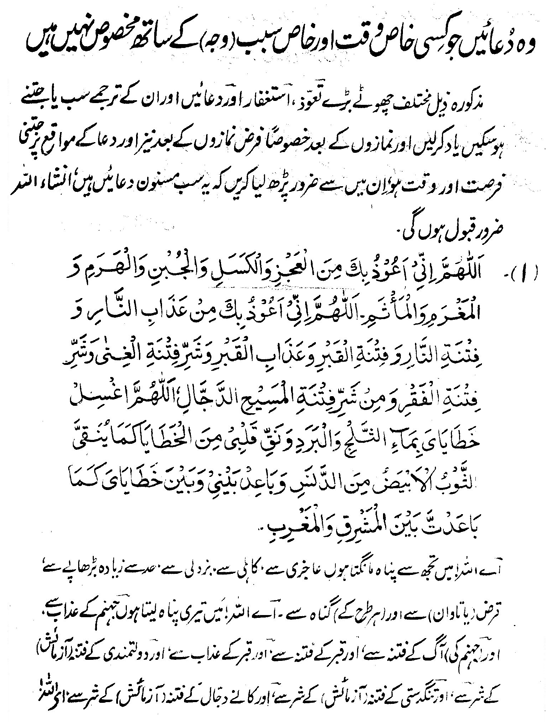 وہ دُعائیں جو کسی خاص وقت اور خاص سبب (وجہ) کے ساتھ مخصوص نہیں ہیں
مذکورہ ذیل مختلف چھوٹے بڑے تعوّذ، استغفار اور دعائیں اور ان کے ترجمے سب یا جتنے
ہو سکیں یاد کر لیں اور نمازوں کے بعد خصوصاً فرض نمازوں کے بعد نیز اور دعا کے مواقع پر جتنی
فرصت اور وقت ہو، اِن میں سے ضرور پڑھ لیا کریں کہ یہ سب مسنون دعائیں ہیں، انشاء اللہ
ضرور قبول ہوں گی۔
(۱)۔ اَللّٰهُمَّ اِنِّىْ اَعُوْذُ بِكَ مِنَ الْعَجْزِ وَالْكَسَلِ وَالْجُبْنِ وَالْهَرَمِ وَ
الْمَغْرَمِ وَالْمَأْثَمِ۔ اَللّٰهُمَّ اِنِّىْ اَعُوْذُ بِكَ مِنْ عَذَابِ النَّارِ وَ
فِتْنَةِ النَّارِ وَ فِتْنَةِ الْقَبْرِ وَعَذَابِ الْقَبْرِ وَشَرِّ فِتْنَةِ الْغِنٰى وَشَرِّ
فِتْنَةِ الْفَقْرِ وَ مِنْ شَرِّ فِتْنَةِ الْمَسِيْحِ الدَّجَّالِ، اَللّٰهُمَّ اغْسِلْ
خَطَايَاىَ بِمَاءِ الثَّلْجِ وَالْبَرَدِ وَ نَقِّ قَلْبِىْ مِنَ الْخَطَايَا كَمَا يُنَقَّى
الثَّوْبُ الْاَبْيَضُ مِنَ الدَّنَسِ وَ بَاعِدْ بَيْنِىْ وَ بَيْنَ خَطَايَاىَ كَمَا
بَاعَدْتَّ بَيْنَ الْمَشْرِقِ وَالْمَغْرِبِ۔
اے اللہ! میں تجھ سے پناہ مانگتا ہوں عاجزی سے، کاہلی سے، بزدلی سے، حد سے زیادہ بڑھاپے سے،
قرض (یا تاوان) سے اور (ہر طرح کے) گناہ سے۔ اے اللہ! میں تیری پناہ لیتا ہوں جہنم کے عذاب سے،
اور (جہنم کی) آگ کے فتنہ سے، اور قبر کے فتنہ سے، اور قبر کے عذاب سے، اور دولتمندی کے فتنہ (آزمائش)
کے شر سے، اور تنگدستی کے فتنہ (آزمائش) کے شر سے، اور کانے دجال کے فتنہ (آزمائش) کے شر سے، اے اللہ!